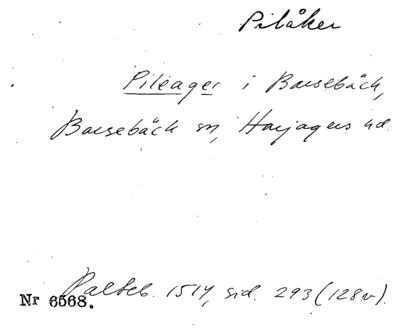 Pilåker
Pileager i Barsebäck,
Barsebäck sn, Harjagers hd.
Palteb. 1514, sid. 293 (128v).
Nr 6568.